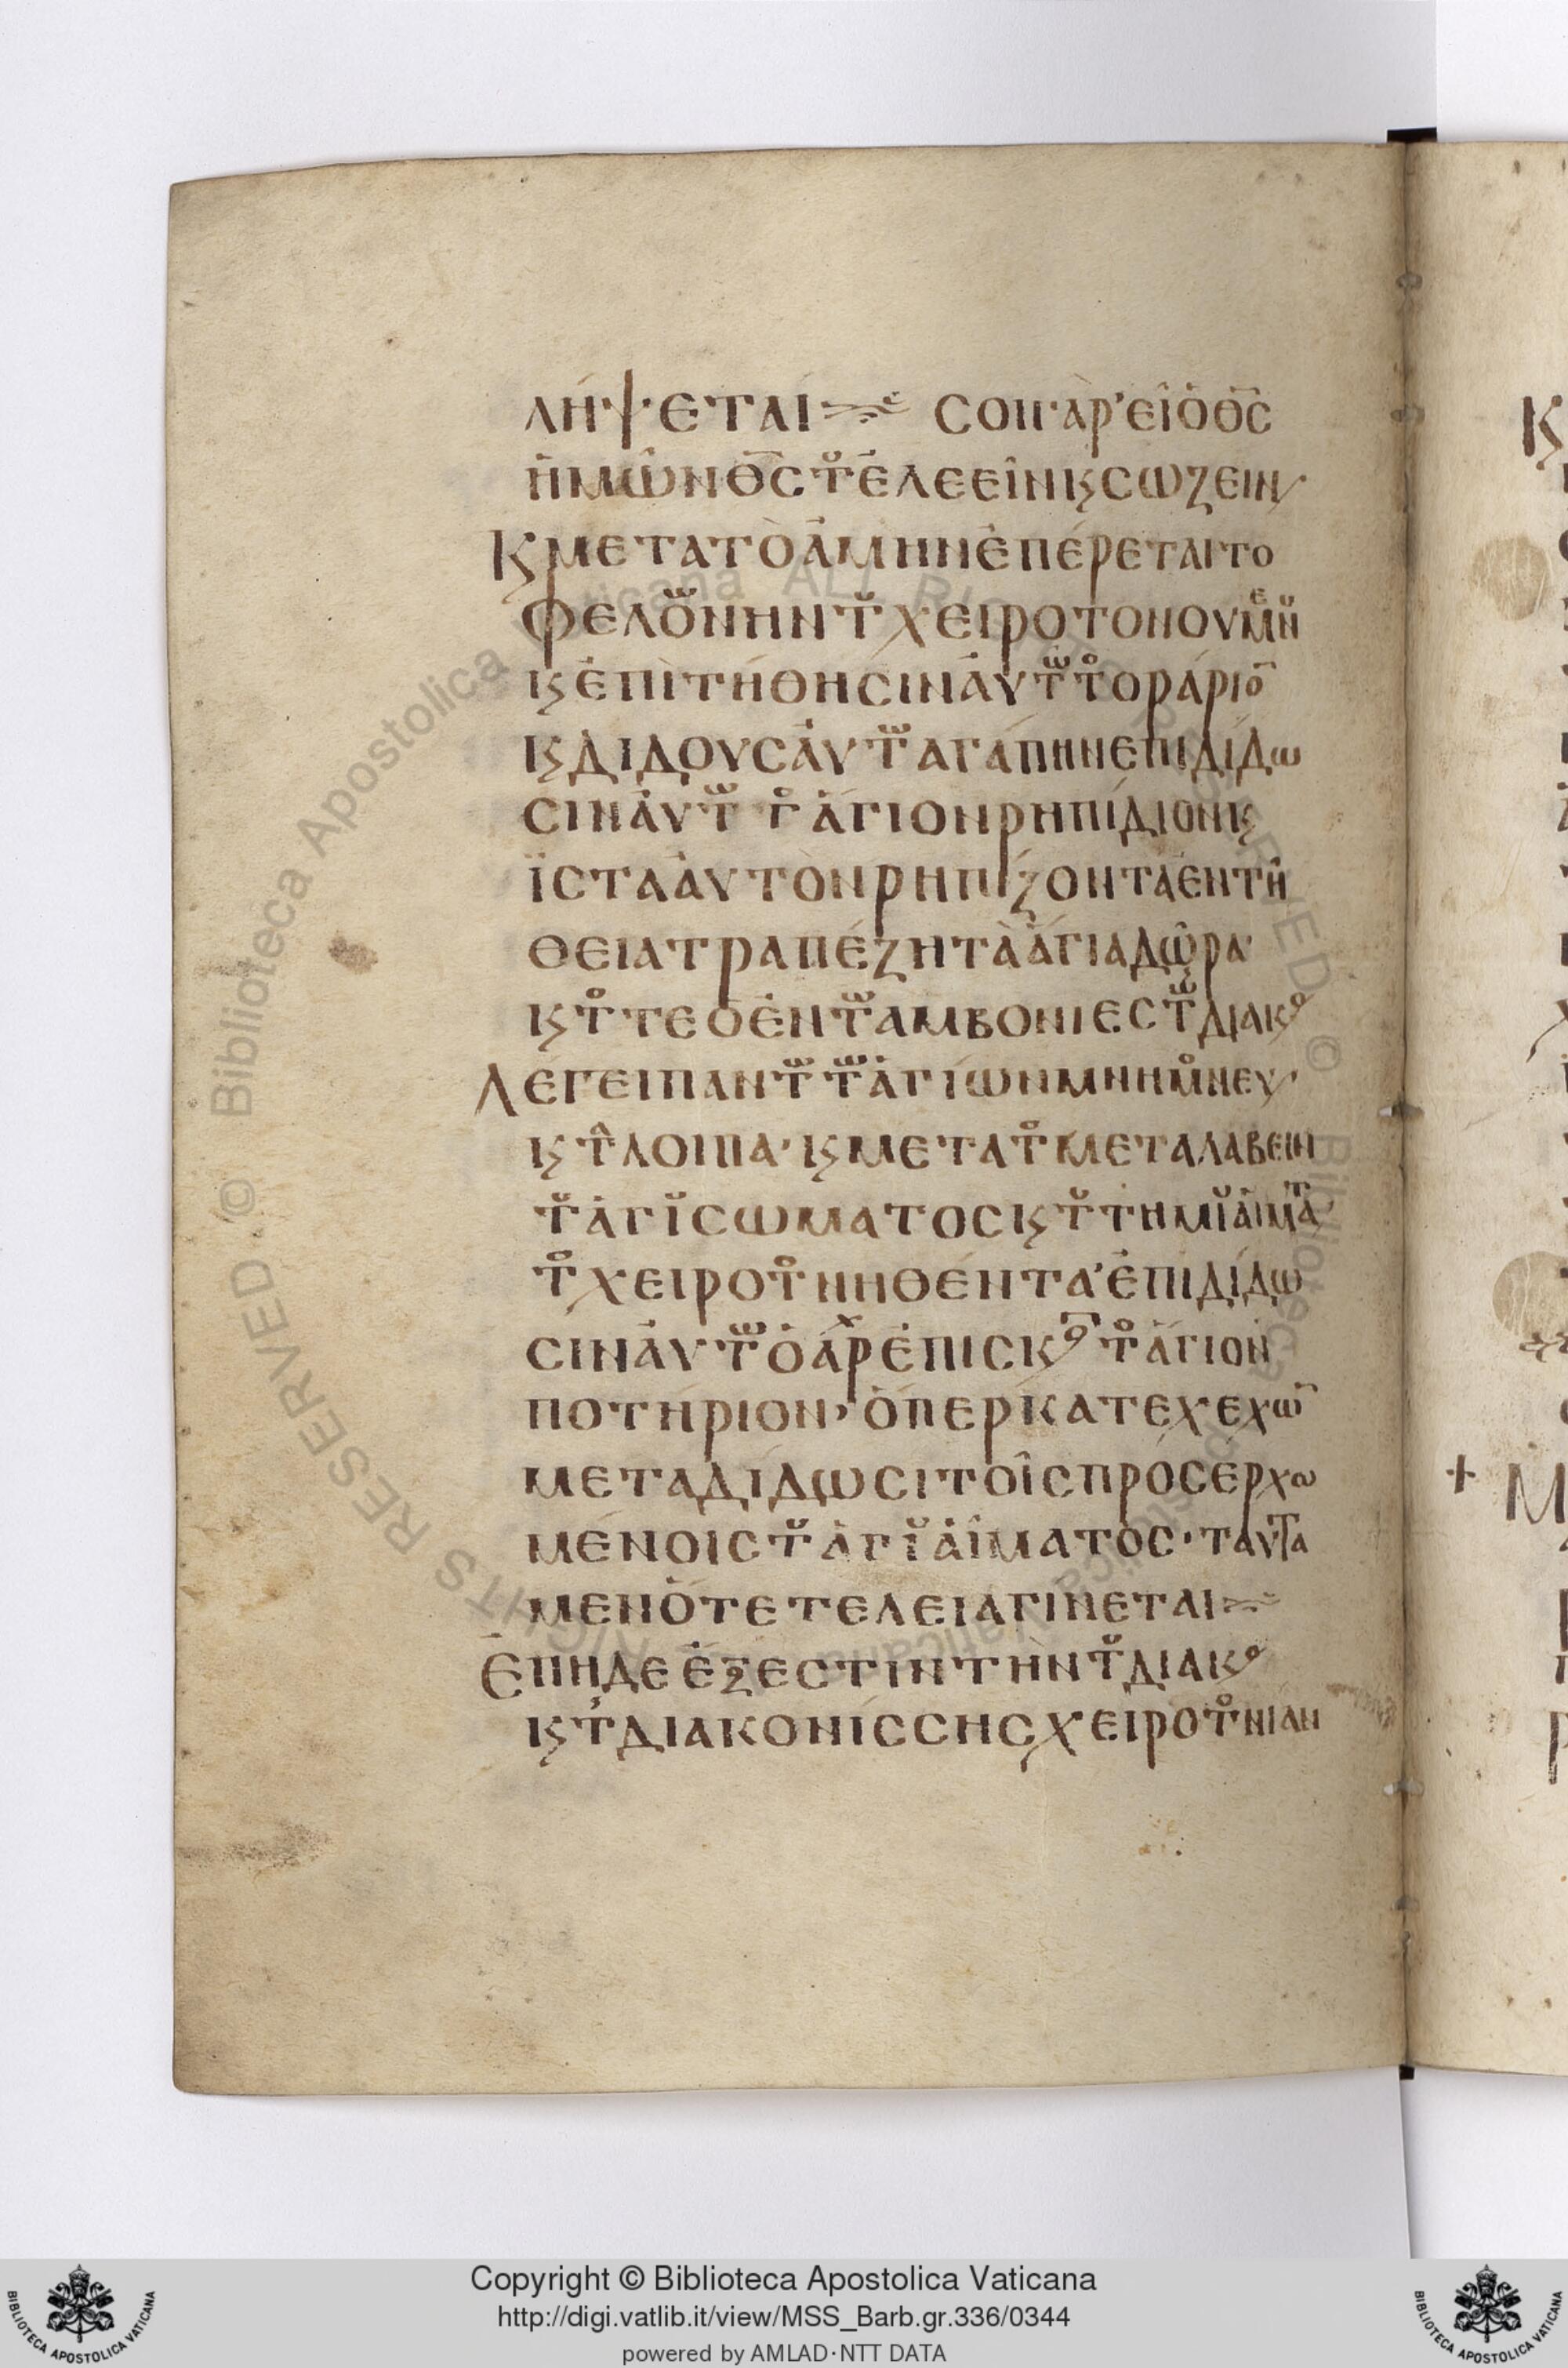 ΛΗ·Ψ·ΕΤΑΙ ϹΟΠ·ἀΡ’ΕῖὁΘ̅Ϲ̅
ἡΜῶΝΘ̅Ϲ̅ΤȣἐΛΕΕῖΝΚϚϹΩΖΕΙΝ·
ΚϚΜΕΤΑΤὸἀΜΗΝἐΠέΡΕΤΑΙΤΟ
ΦΕΛȣΝΗΝΤȣΧΕΙΡΟΤΟΝΟΥΜεΝȣ
ΚϚἐΠΙΤΗΘΗϹΙΝἀΥΤωΤοΟΡάΡΙΟ̅
ΚϚΔΙΔΟΥϹἀΥΤωΑΓάΠΗΝΕΠΙΔίΔω
ϹΙΝἀΥΤωΤοἅΓΙΟΝΡΗΠίΔΙΟΝΚϚ
ΪϹΤΑἀΥΤὸΝΡΗΠίΖΟΝΤΑἐΝΤῆ
ΘΕΙΑΤΡΑΠέΖΗΤὰἅΓΙΑΔῶΡΑ·
ΚϚΤοΤΕὁἐΝΤωΑΜΒΟΝΙΕϹΤωϹΔΙΑΚο
ΛέΓΕΙΠΑΝΤωΤωἁΓίΩΝΜΝΗΜοΝΕΥ·
ΚϚΤὰΛΟΙΠΑ·ΚϚΜΕΤΑΤοΜΕΤΑΛΑΒΕΙΝ
ΤȣἁΓΙȣϹΩΜΑΤΟϹΚϚΤȣΤΗΜΙȣἁΙΜΑΤ
ΤοΧΕΙΡΟΤοΝΗΘέΝΤΑ’ἐΠΙΔίΔω
ϹΙΝἀΥΤωὁἀΡΧἐΠΙϹΚοΠΤοἅΓΙΟΝ
ΠΟΤΗΡΙΟΝ,ὅΠΕΡΚΑΤΕΧΕΧω̅
ΜΕΤΑΔίΔΩϹΙΤΟῖϹΠΡΟϹΕΡΧω
ΜέΝΟΙϹΤȣἁΓΙȣἁΪΜΑΤΟϹ·ΤΑΥΤΑ
ΜΕΝὅΤΕΤΕΛΕΙΑΓΙΝΕΤΑΙ
ἐΠΗΔΕἔΞΕϹΤΙΝΤὴΝΤȣΔΙΑΚο
ΚϚΤῆϹΔΙΑΚΟΝίϹϹΗϹΧΕΙΡΟΤοΝΙΑΝ
Copyright © Biblioteca Apostolica Vaticana
http://digi.vatlib.it/view/MSS_Barb.gr.336/0344
powered by AMLAD·NTT DATA